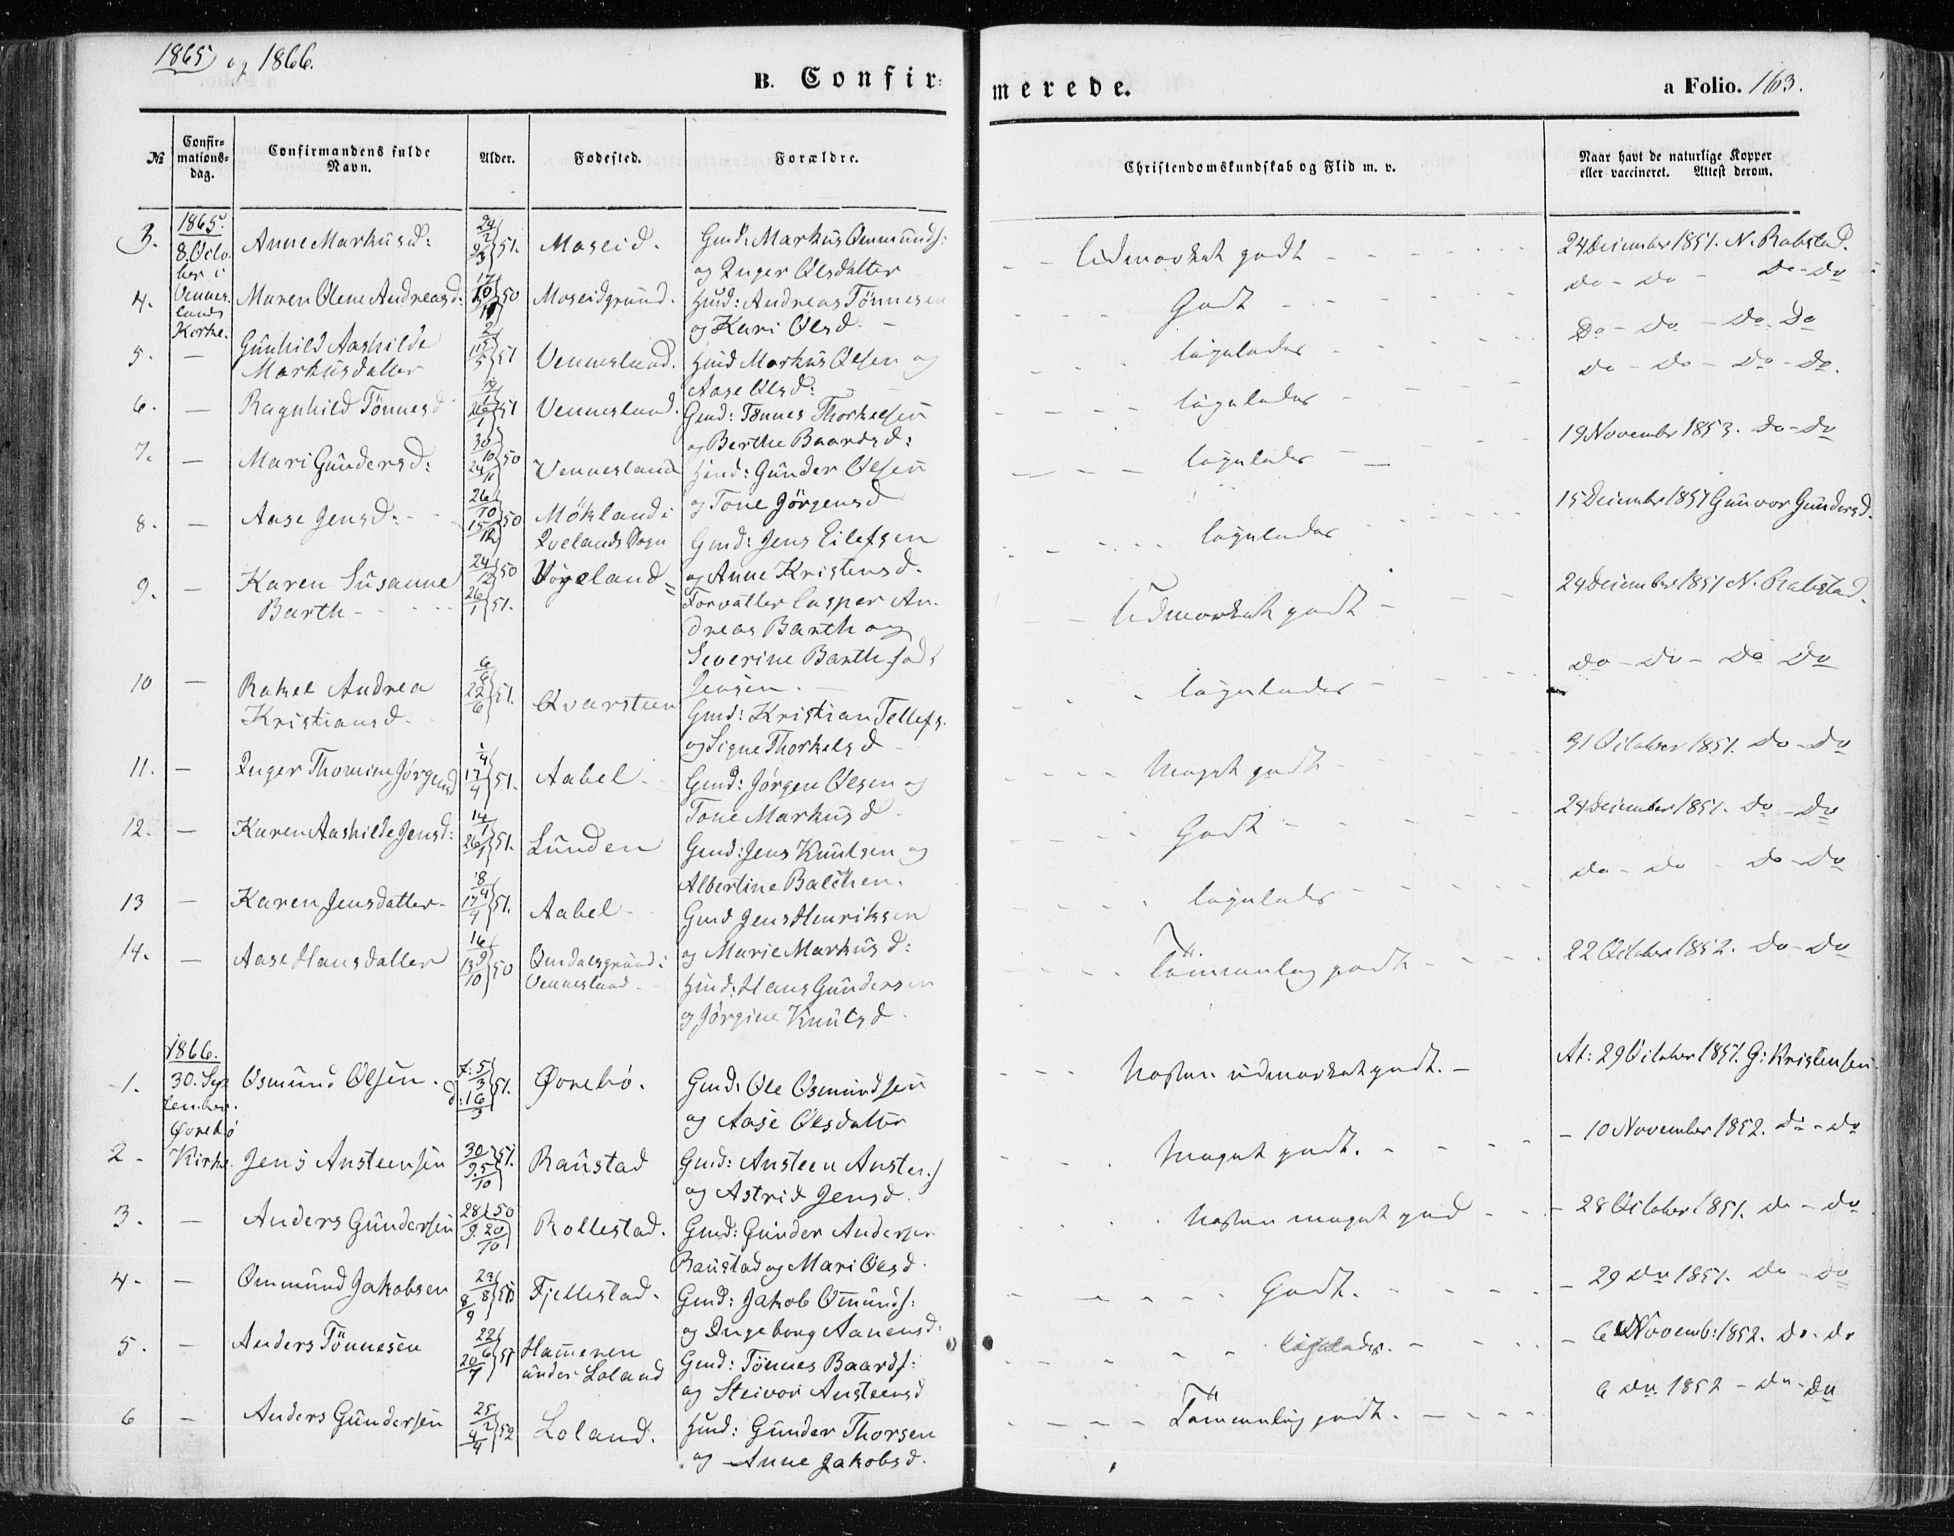 1865 og 1866.
B. Confirmerede.
a Folio. 163.
№ Confirmations-dag. Confirmandens fulde Navn. Alder. Fødested. Forældre. Christendomskundskab og Flid m. v. Naar havt de naturlige Kopper eller vaccineret. Attest derom.
1865.
3. 8. Octo- Anne Markusd: 51. Moseid. Gmd: Markus Ommunds: Udmærket godt 24 December 1851. N. Robstad.
ber i og Inger Olsdatter
4. Vennes- Maren Olene Andreasd: 17/10 50 Moseidgrund. Hmd: Andreas Tönnesen Godt do - do - do - do
lands og Kari Olsd.
Kirke.
5. — Gunhild Aashilde 51 Vennesland. Hmd Markus Olsen og ligeledes Do - do - do. Do
Markusdatter Aase Olsd:
6. — Ragnhild Tönnesd 26/1 51 Vennesland. Gmd: Tönnes Thorkelsen ligeledes do - do - do - do.
og Berthe Baardsd:
7. — Mari Gundersd: 30/10 24/11 50 Vennesland Hmd: Gunder Olsen ligeledes 19 November 1853. do - do
og Tone Jörgensd
8. — Aase Jensd: 26/10 15/12 50 Mökland i Gmd: Jens Eilefsen ligeledes 15 December 1851 Gunvor Gundersd.
Qvelands Sogn og Anne Kristensd.
9. — Karen Susanne 24/12 50 Vögeland Forvalter Casper An- Udmærket godt 24 December 1851 N. Robstad.
Barth 26/1 51. dreas Barth og
Severine Barth fød
Jensen.
10 — Rakel Andrea 6/6 22/6 51. Qvarstein Gmd: Kristian Tellefs. ligeledes do - do - do do
Kristiansd. og Signe Thorkelsd
11. — Inger Thomine Jörgensd 17/4 51. Aabel Gmd: Jörgen Olsen og Meget godt 31 October 1851. do - do
Tone Markusd.
12. — Karen Aashilde Jensd: 14/1 26/1 51. Lunden Gmd: Jens Knutsen og Godt 24 December 1851. do - do
Albertine Balchen.
13 — Karen Jensdatter 8/4 17/4 51. Aabel Gmd Jens Henriksen ligeledes do - do - do - do
og Marie Markusd:
14. — Aase Hansdatter 16/9 13/10 50 Omdalsgrund i Hmd: Hans Gundersen Temmelig godt 22 October 1852. do - do
Vennesland og Jörgine Knutsd.
1866.
1. 30. Sep- Osmund Olsen. f: 5/3 d: 16/3 51. Øvrebø. Gmd: Ole Osmundsen Næsten udmærket godt. At: 29 October 1851. G: Kristensen
tember. og Aase Olsdatter
Øvrebø
2 Kirke. Jens Ansteensen 30/9 5/10 51. Raustad Gmd: Ansteen Anstens Meget godt. 10 November 1852. do - do
og Astrid Jensd.
3. — Anders Gundersen 28/9 20/10 50 Rollestad. Gmd: Gunder Andersen Næsten meget god 28 October 1851. do - do
Raustad og Mari Olsd.
4 — Ommund Jakobsen 8/9 50 Fjellestad. Gmd: Jakob Omunds: Godt. 29 do 1851. do - do
og Ingeborg Aanensd.
5. — Anders Tönnesen 22/6 20/7 51 Hameren Gmd: Tönnes Baards: ligeledes. 6 Novemb: 1852. do - do
under Loland og Steivor Ansteensd
6 — Anders Gundersen 25/2 4/4 52 Loland. Hmd: Gunder Thorsen Temmelig godt. 6 do 1852 - do - do
og Anne Jakobsd.